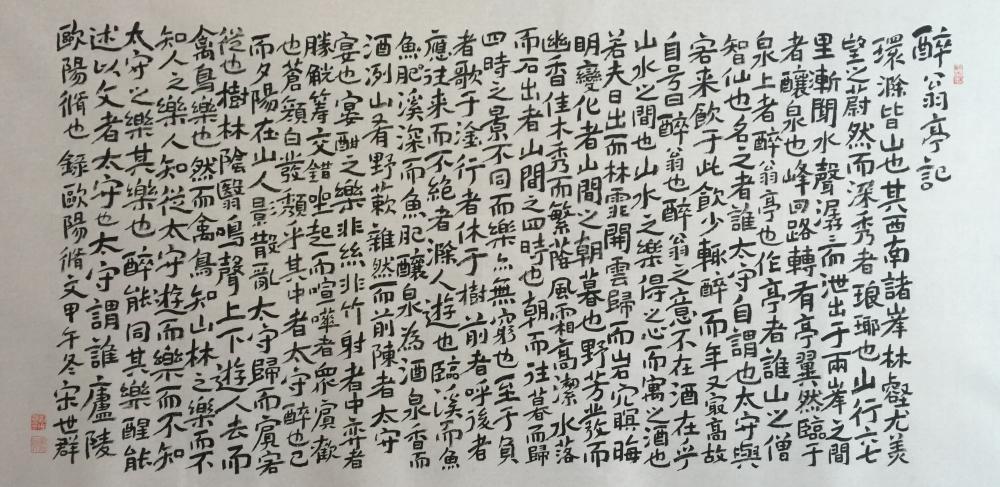 醉翁亭記
環滁皆山也其西南諸峯林壑尤美
望之蔚然而深秀者琅琊也山行六七
里漸聞水聲潺々而泄出于兩峯之間
者釀泉也峰回路轉有亭翼然臨于
泉上者醉翁亭也作亭者誰山之僧
智仙也名之者誰太守自謂也太守與
客来飲于此飲少輒醉而年又最高故
自号曰醉翁也醉翁之意不在酒在乎
山水之間也山水之樂得之心而寓之酒也
若夫日出而林霏開雲歸而岩穴暝晦
明變化者山間之朝暮也野芳發而
幽香佳木秀而繁蔭風霜高潔水落
而石出者山間之四時也朝而往暮而歸
四時之景不同而樂亦無窮也至于負
者歌于塗行者休于樹前者呼後者
應往来而不絕者滁人遊也臨溪而魚
魚肥溪深而魚肥釀泉為酒泉香而
酒洌山肴野蔌雜然而前陳者太守
宴也宴酣之樂非絲非竹射者中弈者
勝觥筹交錯坐起而喧嘩者眾賓歡
也蒼顏白發頹乎其中者太守醉也已
而夕陽在山人影散亂太守歸而賓客
從也樹林陰翳鳴聲上下遊人去而
禽鳥樂也然而禽鳥知山林之樂而不
知人之樂人知從太守遊而樂而不知
太守之樂其樂也醉能同其樂醒能
述以文者太守也太守謂誰廬陵
歐陽脩也 錄歐陽脩文甲午冬宋世群